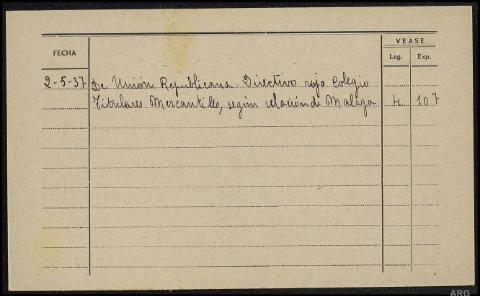 VEASE
FECHA Leg. Exp.
2-5-37 De Unión Republicana. Directivo rojo Colegio
Titulares Mercantiles, según relación di Malaga 4 107
ARG